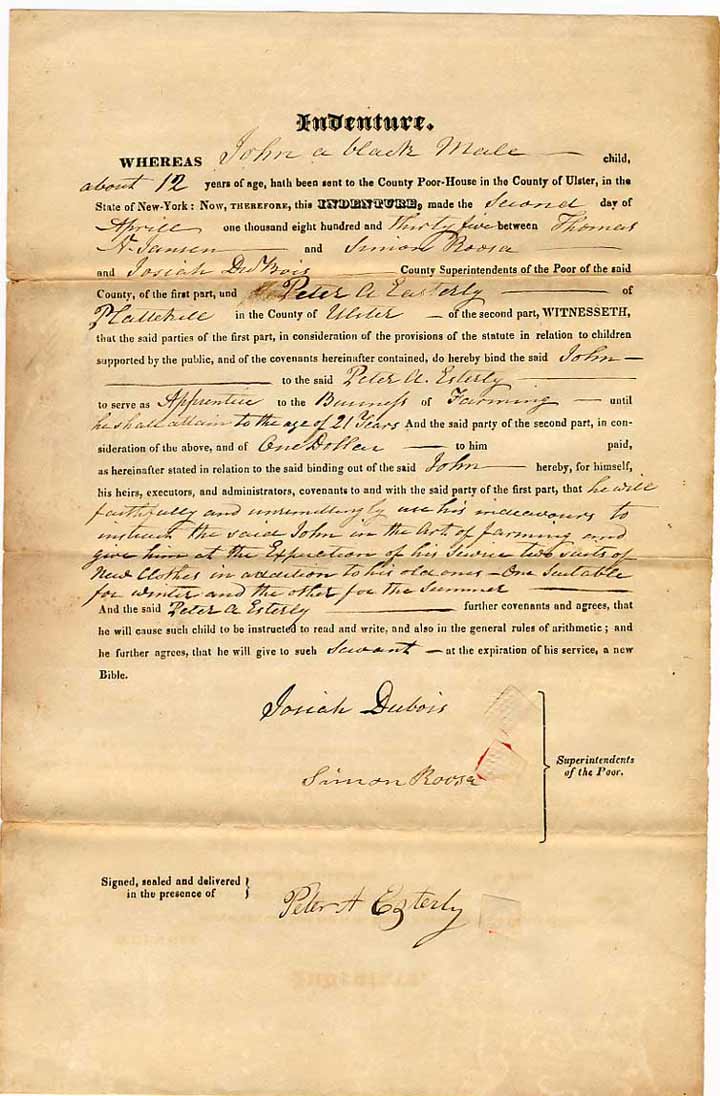 Indenture.
WHEREAS John a black Male child,
about 12 years of age, hath been sent to the County Poor-House in the County of Ulster, in the
State of New-York: Now, THEREFORE, this INDENTURE, made the Second day of
Aprill one thousand eight hundred and thirty five between Thomas
Jansen and Simon Roosa
and Josiah DuBois County Superintendents of the Poor of the said
County, of the first part, and Peter A Easterly of
Plattekill in the County of Ulster of the second part, WITNESSETH,
that the said parties of the first part, in consideration of the provisions of the statute in relation to children
supported by the public, and of the covenants hereinafter contained, do hereby bind the said John
to the said Peter A. Esterly
to serve as Apprentice to the Business of Farming until
he shall attain to the age of 21 Years And the said party of the second part, in con-
sideration of the above, and of One Dollar to him paid,
as hereinafter stated in relation to the said binding out of the said John hereby, for himself,
his heirs, executors, and administrators, covenants to and with the said party of the first part, that he will
faithfully and unremittingly use his indeavours to
instruct the said John in the Art of farming and
give him at the Expiration of his Service two suits of
New Clothes in addition to his old ones - One Suitable
for winter and the other for the Summer
And the said Peter A Esterly further covenants and agrees, that
he will cause such child to be instructed to read and write, and also in the general rules of arithmetic; and
he further agrees, that he will give to such Servant at the expiration of his service, a new
Bible.
Josiah Dubois
Simon Roosa
Superintendents
of the Poor.
Signed, sealed and delivered
in the presence of
Peter A Ezterly